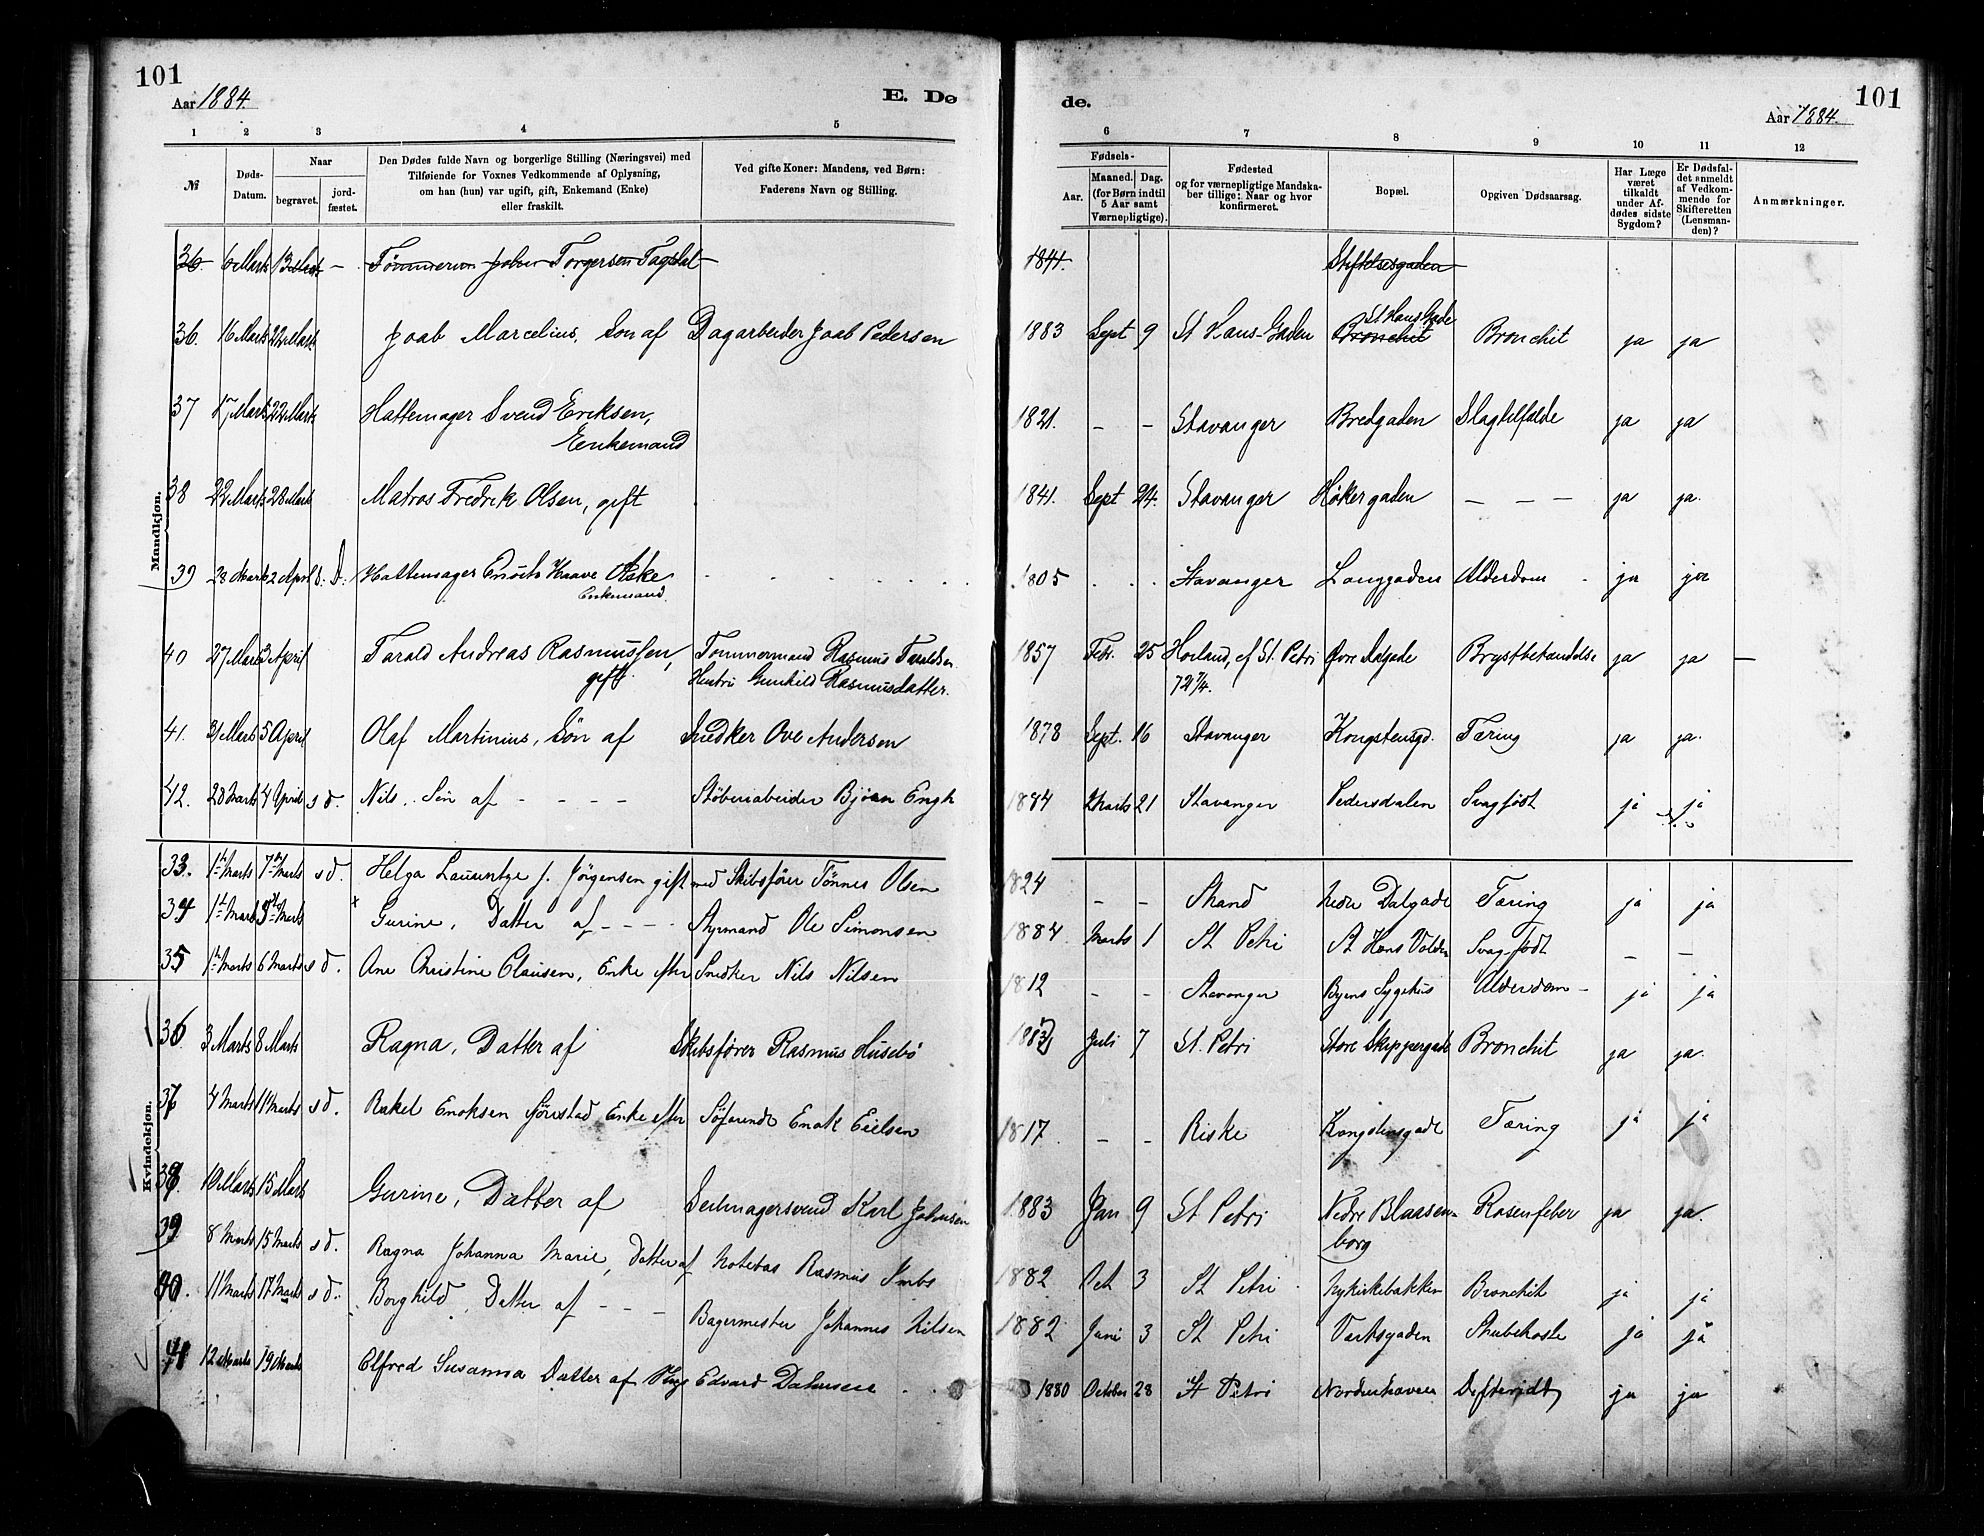 101
Aar 1884.
E. Dø
de.
Aar 1884.
101
1 2 3 4 5 6 7 8 9 10 11 12
№
Døds-Datum.
Naar
begravet.
jord-fæstet.
Den Dødes fulde Navn og borgerlige Stilling (Næringsvei) med
Tilføiende for Voxnes Vedkommende af Oplysning,
om han (hun) var ugift, gift, Enkemand (Enke)
eller fraskilt.
Ved gifte Koner: Mandens, ved Børn:
Faderens Navn og Stilling.
Fødsels-
Aar.
Maaned. Dag.
(for Børn indtil
5 Aar samt
Værnepligtige).
Fødested
og for værnepligtige Mandska-
ber tillige: Naar og hvor
konfirmeret.
Bopæl.
Opgiven Dødsaarsag.
Har Læge
været
tilkaldt
under Af-
dødes sidste
Sygdom?
Er Dødsfal-
det anmeldt
af Vedkom-
mende for
Skifteretten
(Lensman-
den)?
Anmærkninger.
Mandkjøn.
36. 6 Marts 13 Marts - Tømmerm Johan Torgersen Tagdal 1841. Stiftelsesgaden
St Hans Gade
36. 16 Marts 22 Marts Joab Marcelius, Søn af Dagarbeider Joab Pedersen 1883 Sept 9 St Hans-Gaden Bronchit Bronchit ja ja
37 17 Marts 22 Marts Hattemager Svend Eriksen, 1821. - - Stavanger Bredgaden Slagtilfælde ja ja
Enkemand
38 22 Marts 28 Marts Matros Fredrik Olsen, gift 1841. Sept 24. Stavanger Høkergaden - - - ja ja.
39 28 Marts 2 April s. D. Hattemager Enoch Haave 1805 Stavanger Langgaden Alderdom ja ja
Enkemand.
40 27 Marts 3 April Tarald Andreas Rasmussen, Tømmermand Rasmus Taraldsen 1857 Febr. 25 Hosland, cf St. Petri Øvre Dalgade Brystbetændelse ja ja -
gift. Hustru Gunhild Rasmusdatter. 72 7/4.
41. 31 Marts 5 April Olaf Martinius, Søn af Snedker Ove Andersen 1878 Sept. 16 Stavanger Kongstensgd. Tæring ja ja.
42. 28 Marts 4 April s d. Nils, Søn af - - - - Støberiarbeider Bjørn Engh 1884 Marts 21 Stavanger Pedersdalen Svagfødt ja ja
Kvindekjøn.
33. 1 Marts 7 Marts s d. Helga Laurentze f. Jörgensen gift med Skibsfører Tønnes Olsen 1824 - - Strand Nedre Dalgade Tæring ja ja
34 1 Marts Marts Gurine, Datter af - - - - Styrmand Ole Simonsen 1884 Marts 1 St Petri St Hans Volden Svagfødt - -
35 1 Marts 6 Marts s d. Ane Christine Clausen, Enke efter Snedker Nils Nilsen 1812 - - Stavanger Byens Sygehus Alderdom - ja ja
36 3 Marts 8 Marts Ragna, Datter af Skibsfører Rasmus Husebø 1883 Juli 7 St. Petri Store Skippergade Bronchit ja ja.
37 4 Marts 11 Marts s d. Rakel Enoksen Enke efter Søfarende Enok Eielsen 1817 - - Riske Kongstensgade Tæring ja ja
38. 10 Marts 15 Marts Gurine, Datter af Seilmagersvend Karl Johnsen 1883 Jan 9 St Petri Nedre Blaasen- Rosenfeber ja ja.
borg
39 8 Marts 15 Marts s d. Ragna Johanna Marie, Datter af Notebas Rasmus 1882 Oct 3 St Petri Nykirkebakken Bronchit ja ja
40. 11 Marts 17 Marts s d. Borghild, Datter af - - - Bagermester Johannes Nilsen 1882 Juni 3 St Petri Varksgaden Strubehoste ja ja
41 12 Marts 19 Marts Elfred Susanna Datter af Edvard Dahnsen 1880 October 28 St Petri Nordenhaven Difteridt ja ja